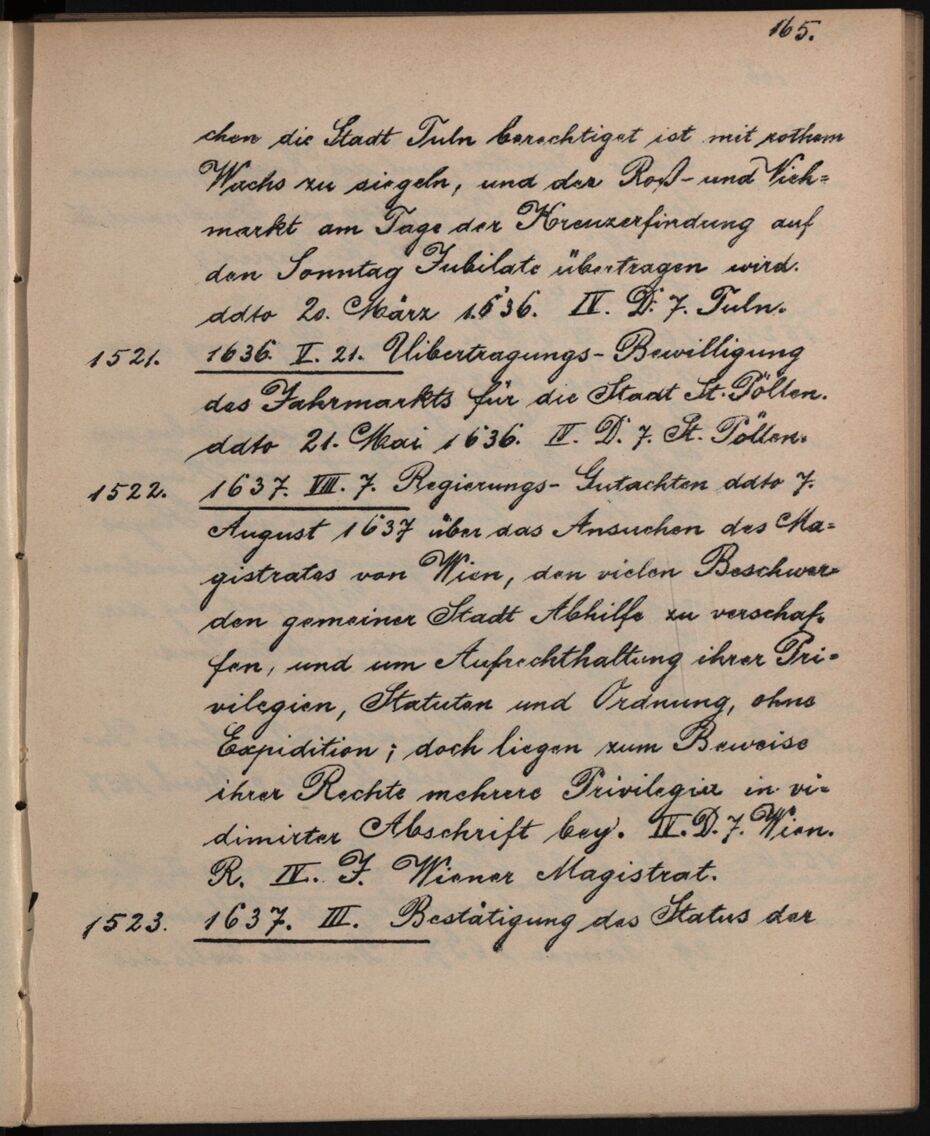 165.
chen die Stadt Tuln berechtiget ist mit rothem
Wachs zu siegeln, und der Roß- und Vieh=
markt am Tage der Kreuzerfindung auf
den Sonntag Jubilate übertragen wird.
ddto 20. März 1636. IV. D. 7. Tuln.
1521. 1636. V. 21. Uibertragungs-Bewilligung
des Jahrmarkts für die Stadt St. Pölten.
ddto 21. Mai 1636. IV. D. 7. St. Pölten.
1522. 1637. VIII. 7. Regierungs-Gutachten ddto 7.
August 1637 über das Ansuchen des Ma=
gistrates von Wien, den vielen Beschwer=
den gemeiner Stadt Abhilfe zu verschaf=
fen, und um Aufrechthaltung ihrer Pri=
vilegien, Statuten und Ordnung, ohne
Expidition; doch liegen zum Beweise
ihrer Rechte mehrere Privilegia in vi=
dimirter Abschrift bey. IV. D. 7. Wien.
R. IV. F. Wiener Magistrat.
1523. 1637. III. Bestätigung des Status der